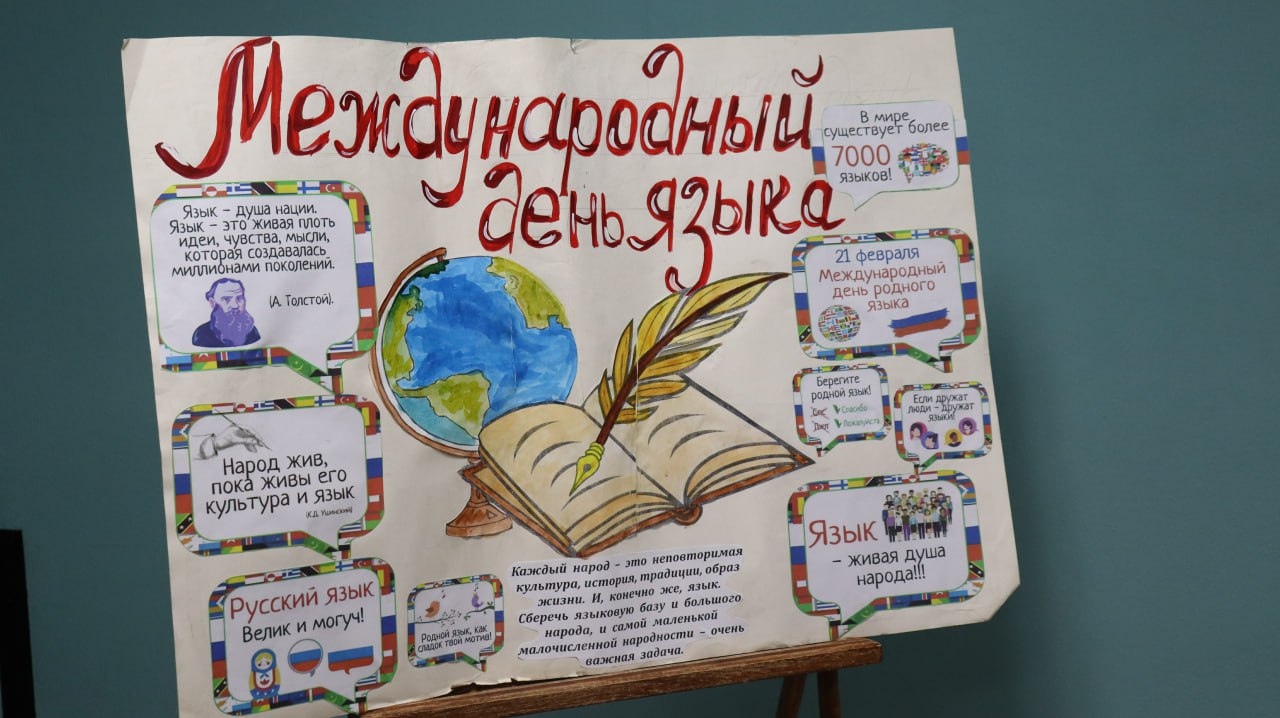 Международный
день языка
В мире
существует более
7000
языков!
Язык – душа нации.
Язык – это живая плоть
идеи, чувства, мысли,
которая создавалась
миллионами поколений.
(А. Толстой).
21 февраля
Международный
день родного
языка
Берегите
родной язык!
Спс
Спасибо
Пожалуйста
Если дружат
люди – дружат
языки!
Народ жив,
пока живы его
культура и язык
(К.Д. Ушинский)
Язык
– живая душа
народа!!!
Русский язык
Велик и могуч!
Родной язык, как
сладок твой мотив!
Каждый народ – это неповторимая
культура, история, традиции, образ
жизни. И, конечно же, язык.
Сберечь языковую базу и большого
народа, и самой маленькой
малочисленной народности – очень
важная задача.